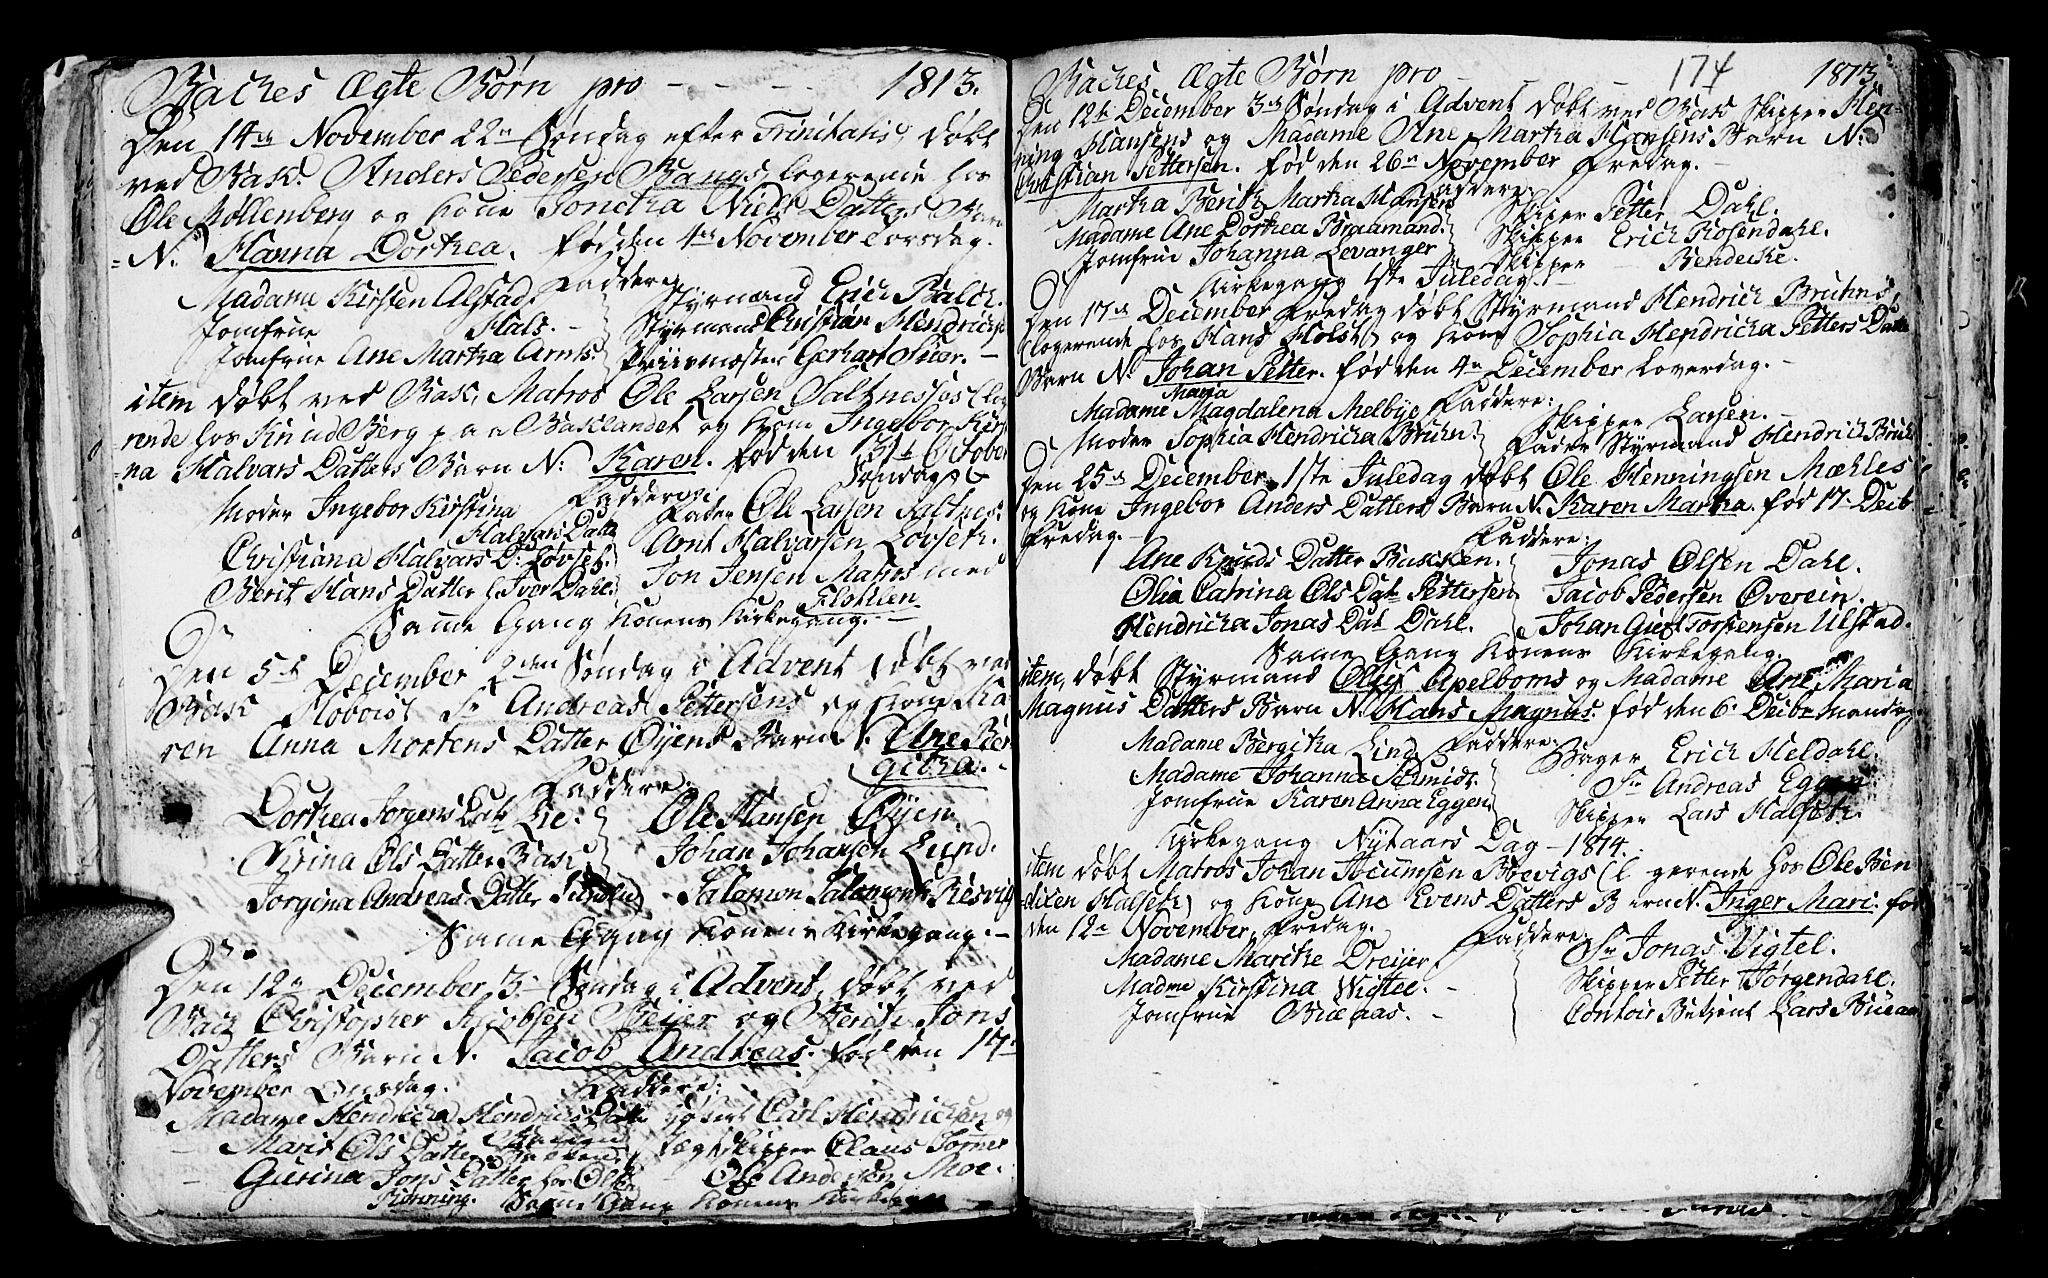 Backes Ægte Børn pro - - - - 1813.
Den 14de November 22n Søndag efter Trinitatis, døbt
ved Bak. Anders Pedersen Bangs, logerende hos
Ole Møllenberg og Kone Jonetha Niels Datters Barn
N. Hanna Dorthea, fød den 4de November Torsdag.
Faddere
Madame Kirsten Alstad.
Jomfrue Hals.
Jomfrue Ane Martha Arnts.
Styrmand Erich Balch.
Styrmand Christian Hendrichs
Gerhart
item døbt ved Bak. Matros Ole Larsen Saltnessjøs (loge
rende hos Knud Berg paa Baklandet og Kone Ingebor Kirsti
na Halvars Datters Barn N: Karen. fød den 31te October
Søndag
Faddere
Moder Ingebor Kirstina
Halvars Datter
Christiana Halvars D. Løvset.
Berit Hans Datter h. Iver Dahl.
Fader Ole Larsen Saltnes.
Arnt Halvarsen Løvseth.
Jon Jensen Matros med
Flotilen
Samme Gang Konens Kirkegang.
Den 5te December 2den Søndag i Advent døbt ved
Bak Sr Andreas Pettersens og Kone Ka
ren Anna Mortens Datter Øyens Barn N. Ane Ber
githa.
Faddere
Dorthea Jorgens Dat. Lie:
Ols Datter Bak
Jorgina Andreas Datter
Ole Hansen Øyen.
Johan Johansen Lund.
Salamon Salamons. Resvig
Same Gang Konens Kirkegang.
Den 12te December 3. Søndag i Advent, døbt ved
Back Christopher Jacobsen Beijer og Berith Jons
Datters Barn N. Jacob Andreas. fød den 17de
November Onsdag. Faddere:
Madame Hendricha Hendrichs Datter
Marit Ols Datter Bakken.
Gurina Jons Datter hos Ole
Rønning.
Carl Hendrichsen og
Skipper Claus
Ole Andersen Moe.
Samme Gang Konens Kirkegang
Backes Ægte Børn pro - - - 174 1813.
Den 12te December 3de Søndag i Advent døbt ved Bak Skipper Hen
ning Hansens og Madame Ane Martha Hansens Barn N.
Christian Pettersen. fød den 26n November Fredag.
Faddere
Martha Berith Martha Hansen
Madame Ane Dorthea Braamand.
Jomfrue Johanna Levanger
Skipper Petter Dahl.
Skipper Erich Rosendahl.
Skipper - Bendecke.
Kirkegang 1ste Juledag.
Den 17de December Fredag døbt Styrmand Hendrich Bruhns,
(logerende hos Hans Holst) og Kone Sophia Hendricka Petters Datter
Barn N. Johan Petter. fød den 4n December Løverdag.
Faddere:
Maria
Madame Magdalena Melbye
Moder Sophia Hendricka Bruhn.
Skipper Larsen.
Fader Styrmand Hendrich Bruhn
Den 25de December 1ste Juledag døbt Ole Henningsen Mæhles
og Kone Ingebor Anders Datters Barn N. Karen Martha. fød 17. Decb
Fredag.
Faddere:
Ane Knuds Datter Bakken.
Olia Catrina Ols Dat. Pettersen
Hendricha Jonas Dat. Dahl.
Jonas Olsen Dahl.
Jacob Pedersen Overein.
Johan Torstensen Ulstad.
Same Gang Konens Kirkegang.
item, døbt Styrmand Oluf Apelboms og Madame Ane Maria
Magnus Datters Barn N. Hans Magnus. fød den 6. Decbr Mandag
Faddere:
Madame Bergitha Lind
Madame Johanna Schmidt.
Jomfrue Karen Anna Eggen
Bager Erich Heldahl.
Sr Andreas Eggen
Skipper Lars Halseth.
Kirkegang Nytaars Dag - 1814.
item døbt Matros Johan Bøevigs (logerende hos Ole Ben
dixen Halseth) og Kone Ane Evens Datters Barn N. Inger Mari. fød
den 12n November, Fredag.
Faddere:
Madame Marethe Dreijer
Madme Kirstina Vigtel.
Jomfrue Buenaas.
Sr Jonas Vigtel.
Skipper Petter Jørgendahl.
Contoir Betjent Lars Buenaas